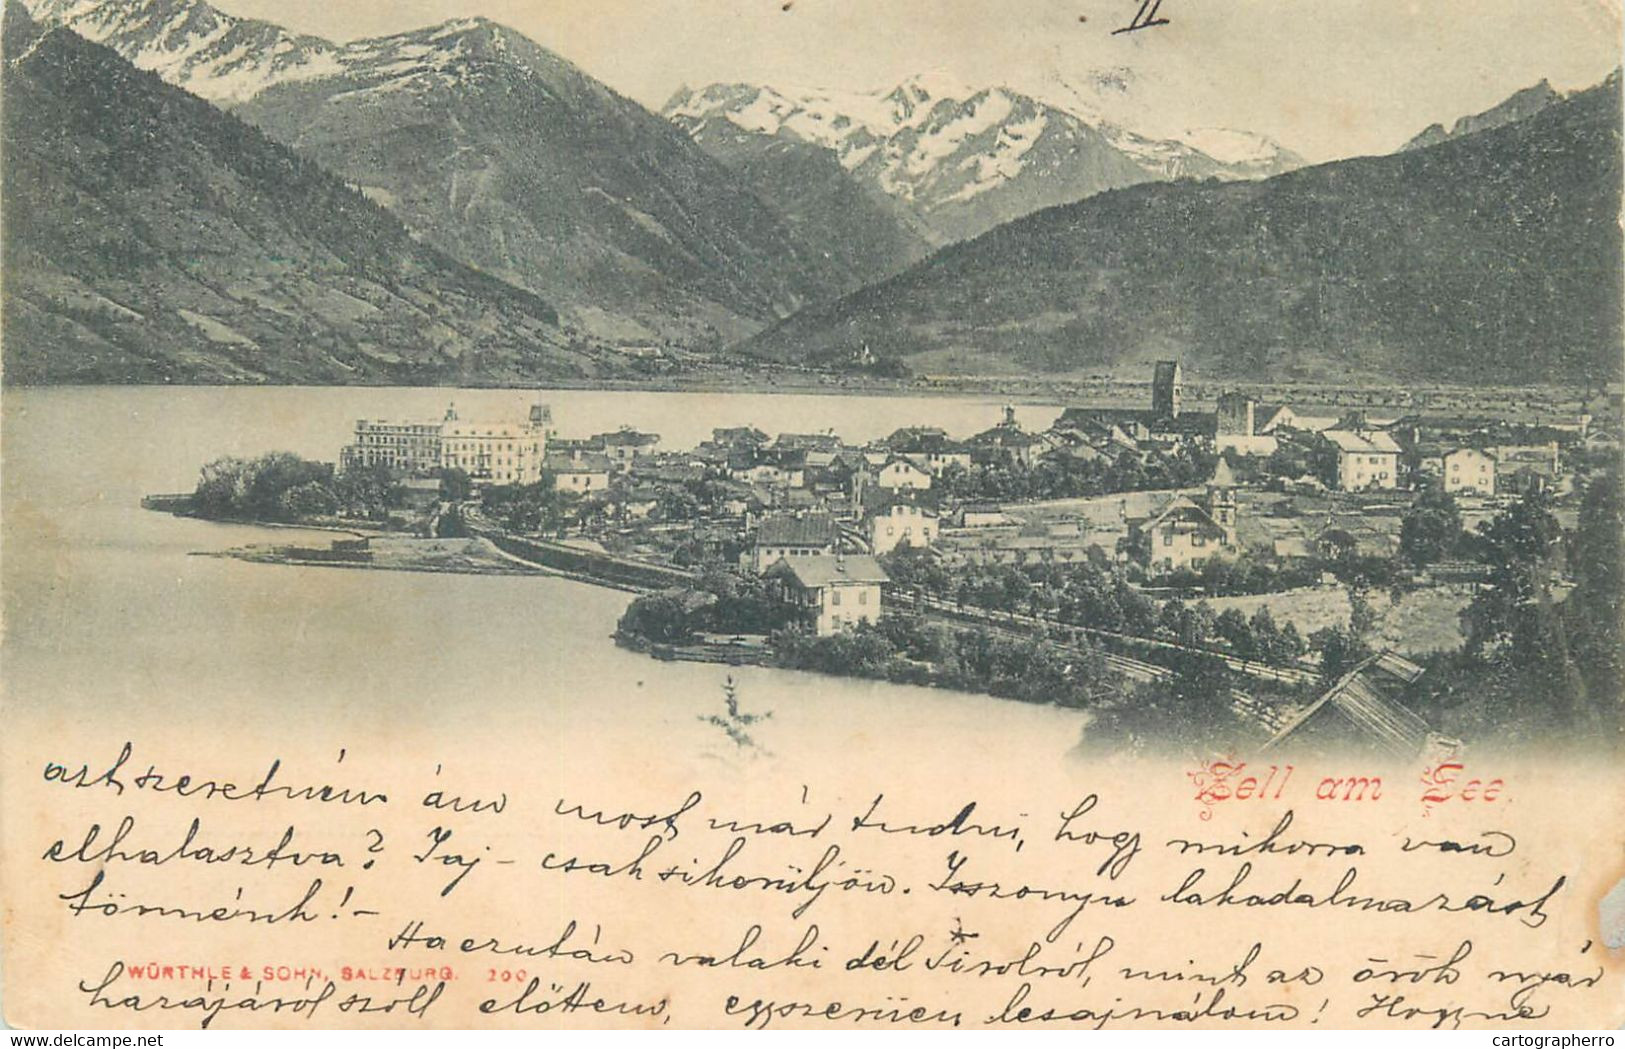 II
Zell am See.
aztszeretném ám most már tudni, hogy mikorra van
elhalasztva? Jaj - csak sikerüljön. Iszonyu lakadalmazást
törnénk! -
Ha ezután valaki dél Tirolról, mint az örök nyár
WÜRTHLE & SOHN, SALZBURG. 200
hazájáról szóll előttem, egyszerüen lesajnálom! Hogyne
delcampe.net
cartographerro